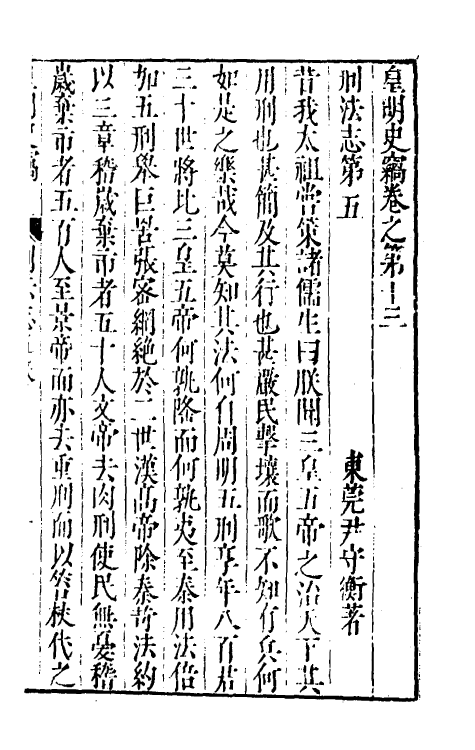 皇明史竊卷之第十三
刑法志第五
東莞尹守衡著
昔我太祖嘗策諸儒生曰朕聞三皇五帝之治天下其
用刑也甚簡及其行也甚嚴民擊壤而歌不知有兵何
如是之樂哉今莫知其法何自周明五刑享年八百君
三十世將比三皇五帝何孰隆而何孰夷至秦用法倍
如五刑舉巨筥張密網絕於二世漢高帝除秦苛法約
以三章稽歲棄市者五十人文帝去肉刑使民無憂稽
歲棄市者五有人至景帝而亦去重刑而以笞杖代之